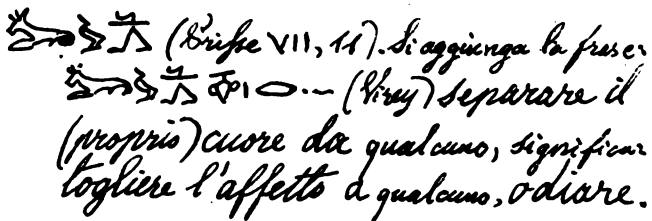 (Prisse VII, 11). Si aggiunga la frase:
(Virey) separare il
(proprio) cuore da qualcuno, significa:
togliere l'affetto a qualcuno, odiare.